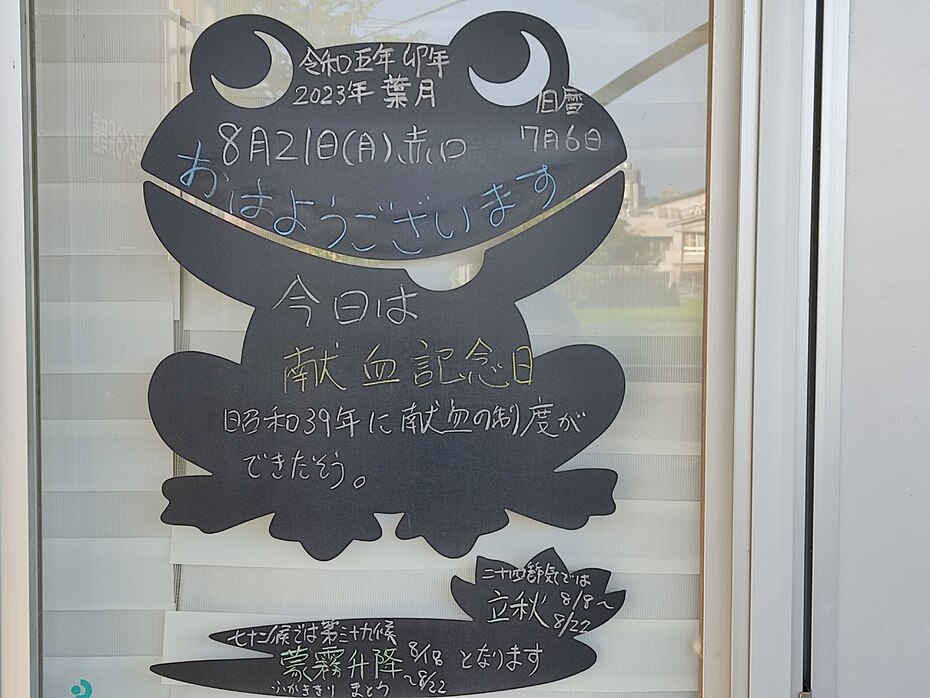 令和五年卯年
2023年 葉月
8月21日(月)赤口
旧暦
7月6日
おはようございます
今日は
献血記念日
昭和39年に献血の制度が
できたそう。
二十四節気では
立秋 8/8〜
8/22
七十二候では第三十九候
蒙霧升降 8/18 となります
〜8/22
ふかききり まとう